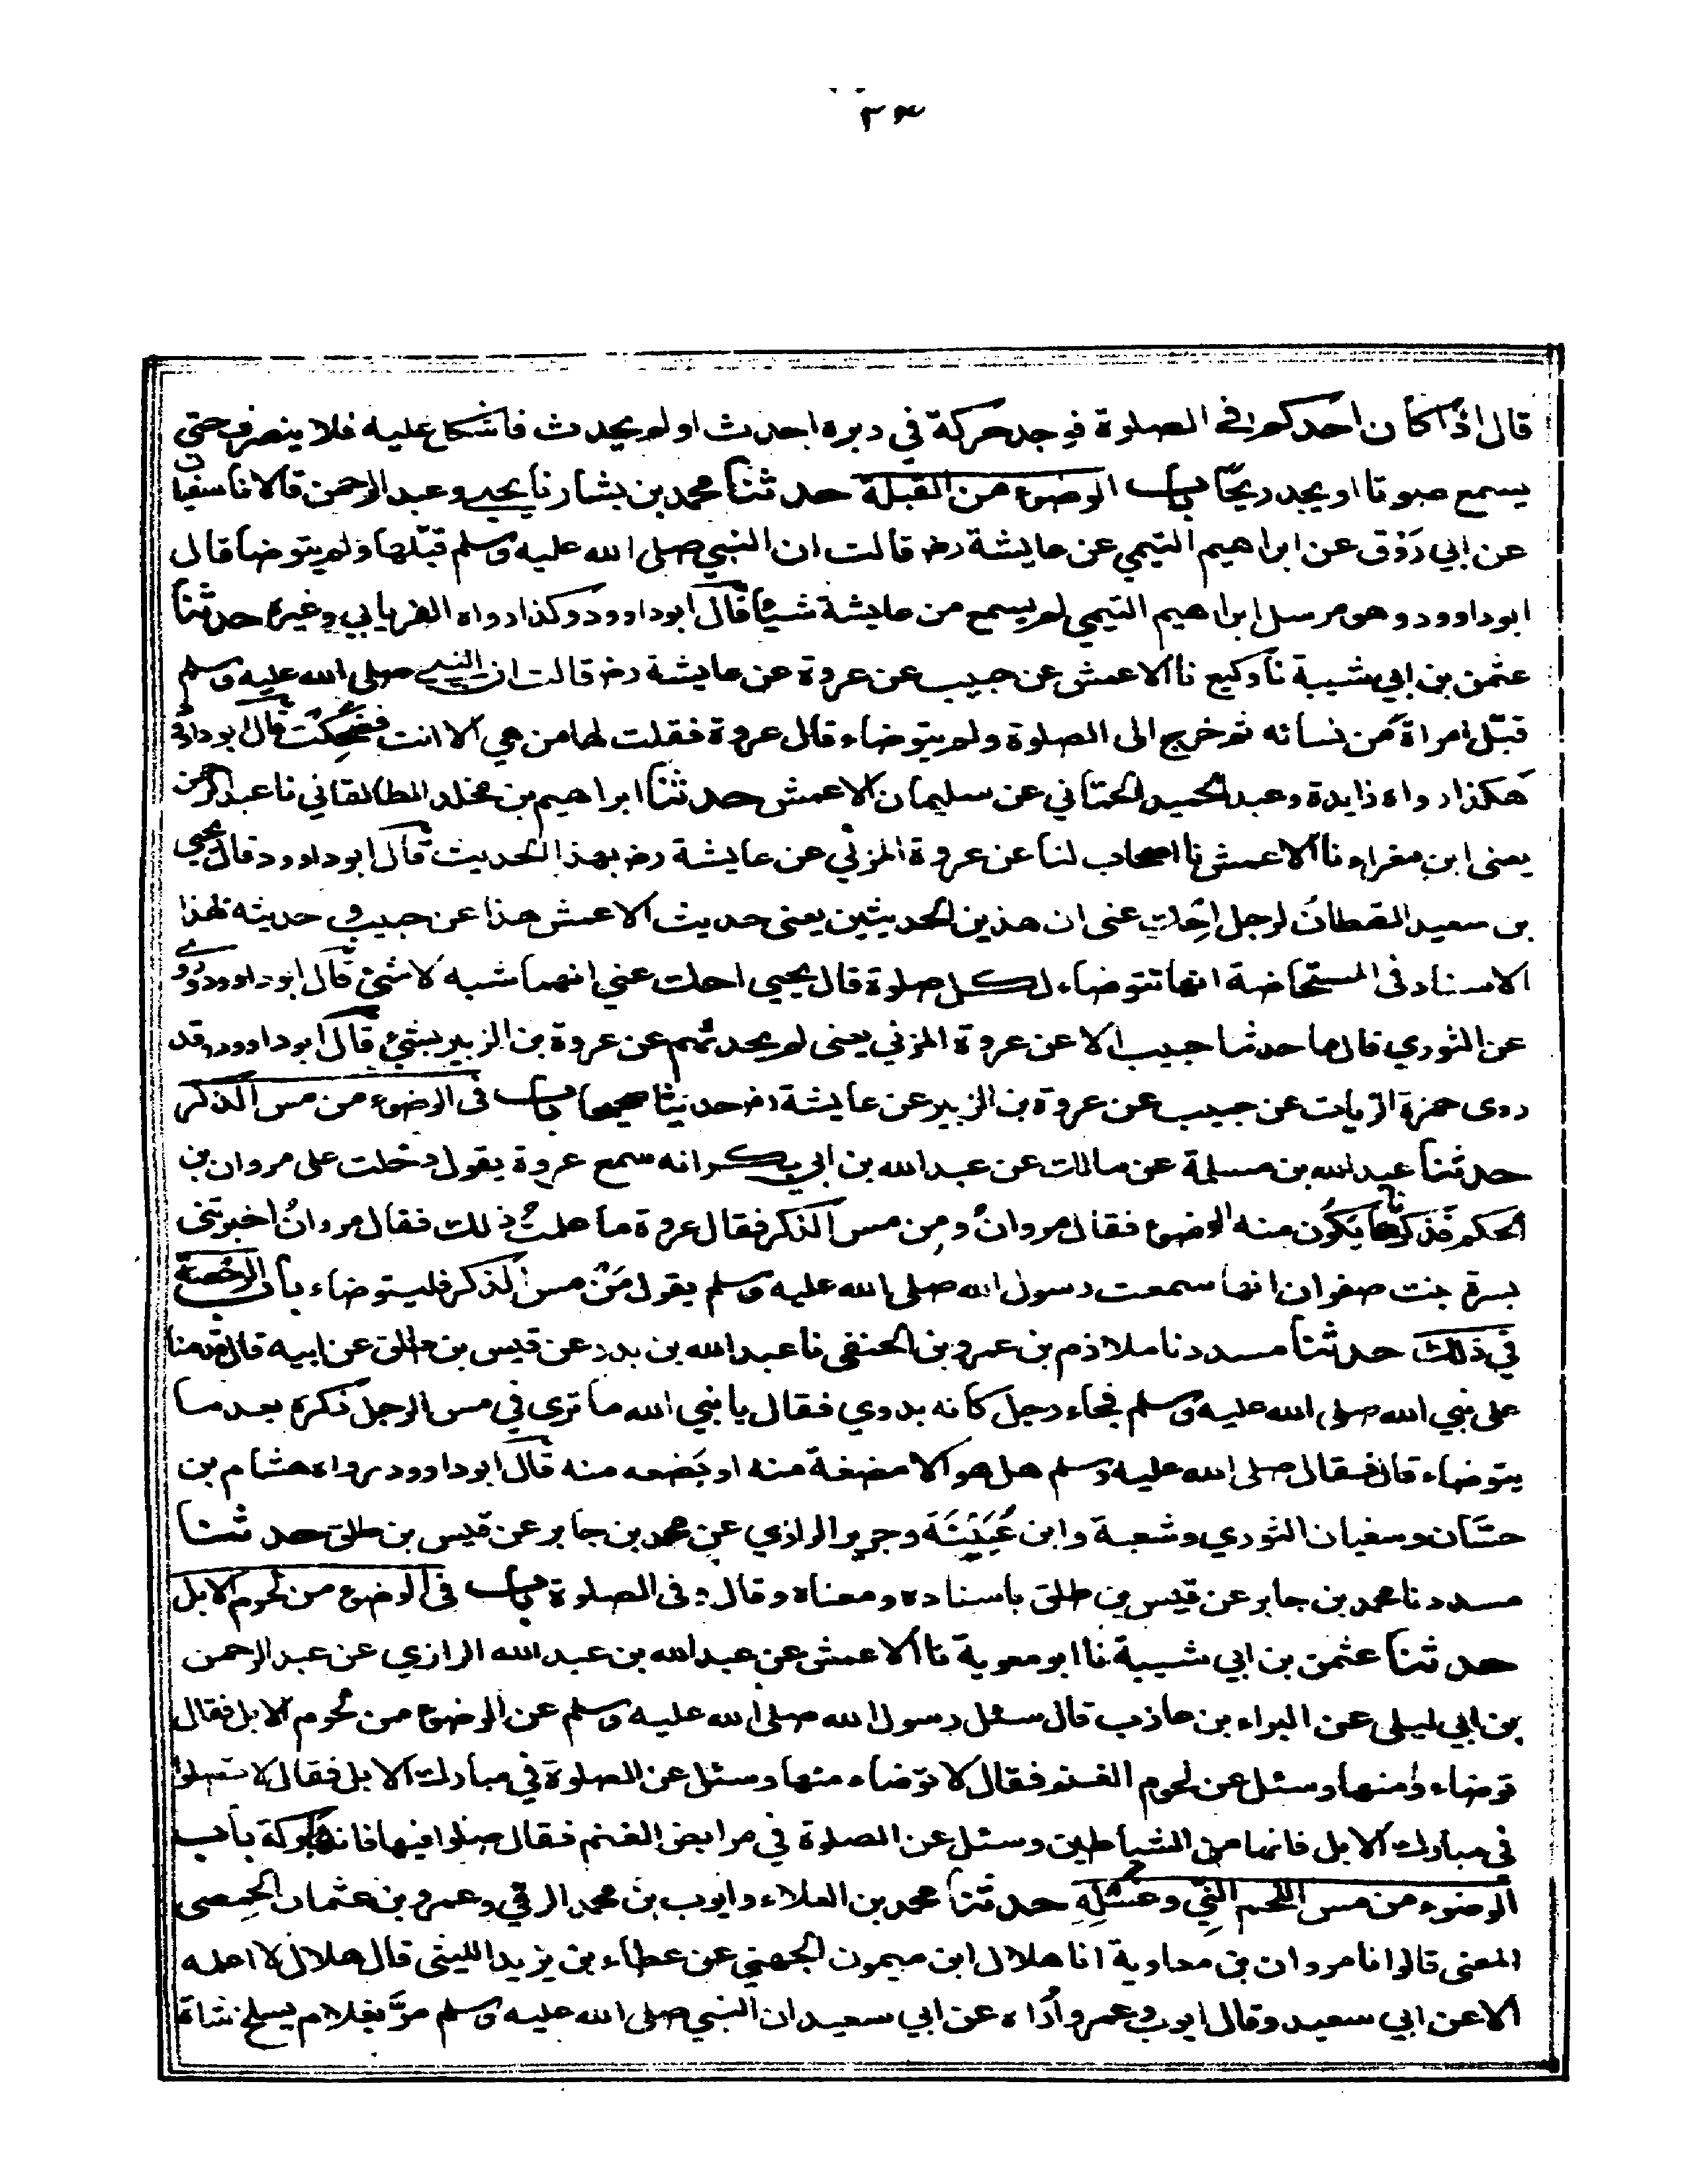 ٣٤
قال اذا كان احدكم في الصلوة فوجد حركة في دبره احدث او لم يحدث فاشكل عليه فلا ينصرف حتى
يسمع صوتا او يجد ريحًا باب الوضوء من القبلة حدثنا محمد بن بشار نا يحيى وعبد الرحمن قالا نا سفيان
عن ابي رَوْق عن ابراهيم التيمي عن عايشة رضـ قالت ان النبي صلى الله عليه وسلم قبّلها ولم يتوضا قال
ابو داوود وهو مرسل ابراهيم التيمي لم يسمع من عايشة شيئًا قال ابو داوود وكذا رواه الفريابي وغيره حدثنا
عثمن بن ابي شيبة نا وكيع نا الاعمش عن حبيب عن عروة عن عايشة رضـ قالت ان النبي صلى الله عليه وسلم
قبّل امراة من نسائه ثم خرج الى الصلوة ولم يتوضاء قال عروة فقلت لها من هي الا انت فضحكت قال ابو داود
هكذا رواه زايدة وعبد الحميد الحمّاني عن سليمان الاعمش حدثنا ابراهيم بن مخلد الطالقاني نا عبد الرحمن
يعنى ابن مغراء نا الاعمش نا اصحاب لنا عن عروة المزني عن عايشة رضـ بهذا الحديث قال ابو داوود قال يحيي
بن سعيد القطان لرجل اِحْكِ عنى ان هذين الحديثين يعنى حديث الاعمش هذا عن حبيب و حديثه بهذا
الاسناد فى المستحاضة انها تتوضاء لكل صلوة قال يحيي احك عني انهما شبه لا شئ قال ابو داوود رُوي
عن الثوري قال ما حدثنا حبيب الا عن عروة المزني يعنى لم يحدثهم عن عروة بن الزبير بشئ قال ابو داوود وقد
روى حمزة الزيات عن حبيب عن عروة بن الزبير عن عايشة رضـ حديثا صحيحا باب فى الوضوء من مس الذكر
حدثنا عبد الله بن مسلمة عن مالك عن عبد الله بن ابي بكر انه سمع عروة يقول دخلت على مروان بن
الحكم فذكرنا ما يكون منه الوضوء فقال مروانُ ومن مس الذكر فقال عروة ما علمتُ ذلك فقال مروانُ اخبرتنى
بسرة بنت صفوان انها سمعت رسول الله صلى الله عليه وسلم يقول مَنْ مس الذكر فليتوضاء باب الرخصة
في ذلك حدثنا مسدد نا ملازم بن عمرو بن الحنفى نا عبد الله بن بدر عن قيس بن طلق عن ابيه قال قدمنا
على نبي الله صلى الله عليه وسلم فجاء رجل كانه بدوي فقال يا نبي الله ما ترى في مس الرجل ذكره بعد ما
يتوضاء قال فقال صلى الله عليه وسلم هل هو الا مضغة منه او بَضعه منه قال ابو داوود رواه هشام بن
حسّان وسفيان الثوري وشعبة وابن عُيَيْنَة وجرير الرازي عن محمد بن جابر عن قيس بن طلق حدثنا
مسدد نا محمد بن جابر عن قيس بن طلق باسناده ومعناه وقال في الصلوة باب فى الوضوء من لحوم الابل
حدثنا عثمن بن ابي شيبة نا ابو معوية نا الاعمش عن عبد الله بن عبد الله الرازي عن عبد الرحمن
بن ابي ليلى عن البراء بن عازب قال سئل رسول الله صلى الله عليه وسلم عن الوضوء من لحوم الابل فقال
توضاءوا منها وسئل عن لحوم الغنم فقال لا توضاء منها وسئل عن الصلوة في مبارك الابل فقال لا تصلوا
في مبارك الابل فانها من الشياطين وسئل عن الصلوة في مرابض الغنم فقال صلوا فيها فانها بركة باب
الوضوء من مس اللحم النّي وغسْلِه حدثنا محمد بن العلاء وايوب بن محمد الرقي وعمرو بن عثمان الحِمصى
المعنى قالوا نا مروان بن معاوية انا هلال ابن ميمون الجهني عن عطاء بن يزيد الليثى قال هلال لا اعلمه
الا عن ابي سعيد وقال ايوب و عمرو اُرَاه عن ابي سعيد ان النبي صلى الله عليه وسلم مرّ بغلام يسلخ شاة